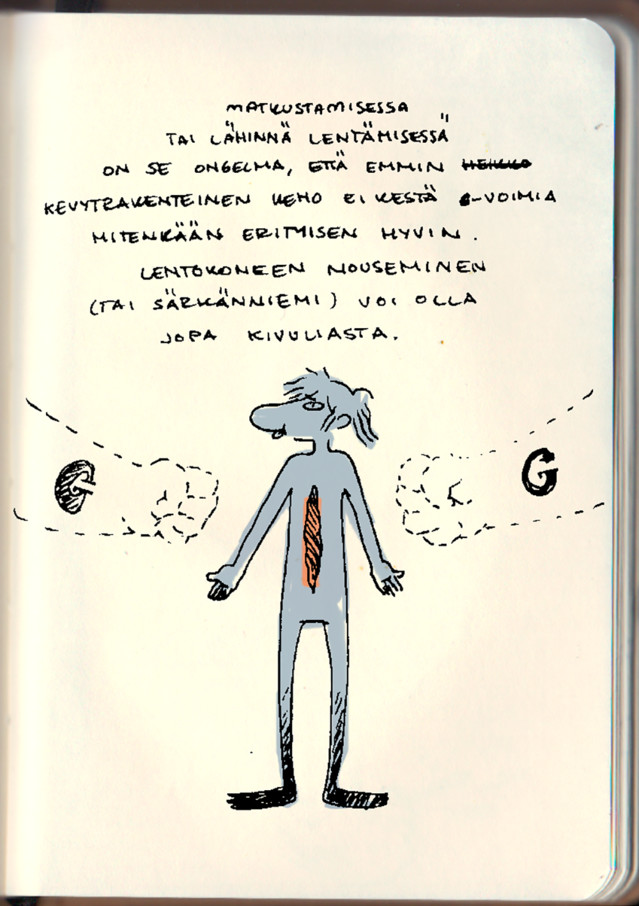 MATKUSTAMISESSA
TAI LÄHINNÄ LENTÄMISESSÄ
ON SE ONGELMA, ETTÄ EMMIN HEIKKO
KEVYTRAKENTEINEN KEHO EI KESTÄ G-VOIMIA
MITENKÄÄN ERITYISEN HYVIN.
LENTOKONEEN NOUSEMINEN
(TAI SÄRKÄNNIEMI) VOI OLLA
JOPA KIVULIASTA.
G
G